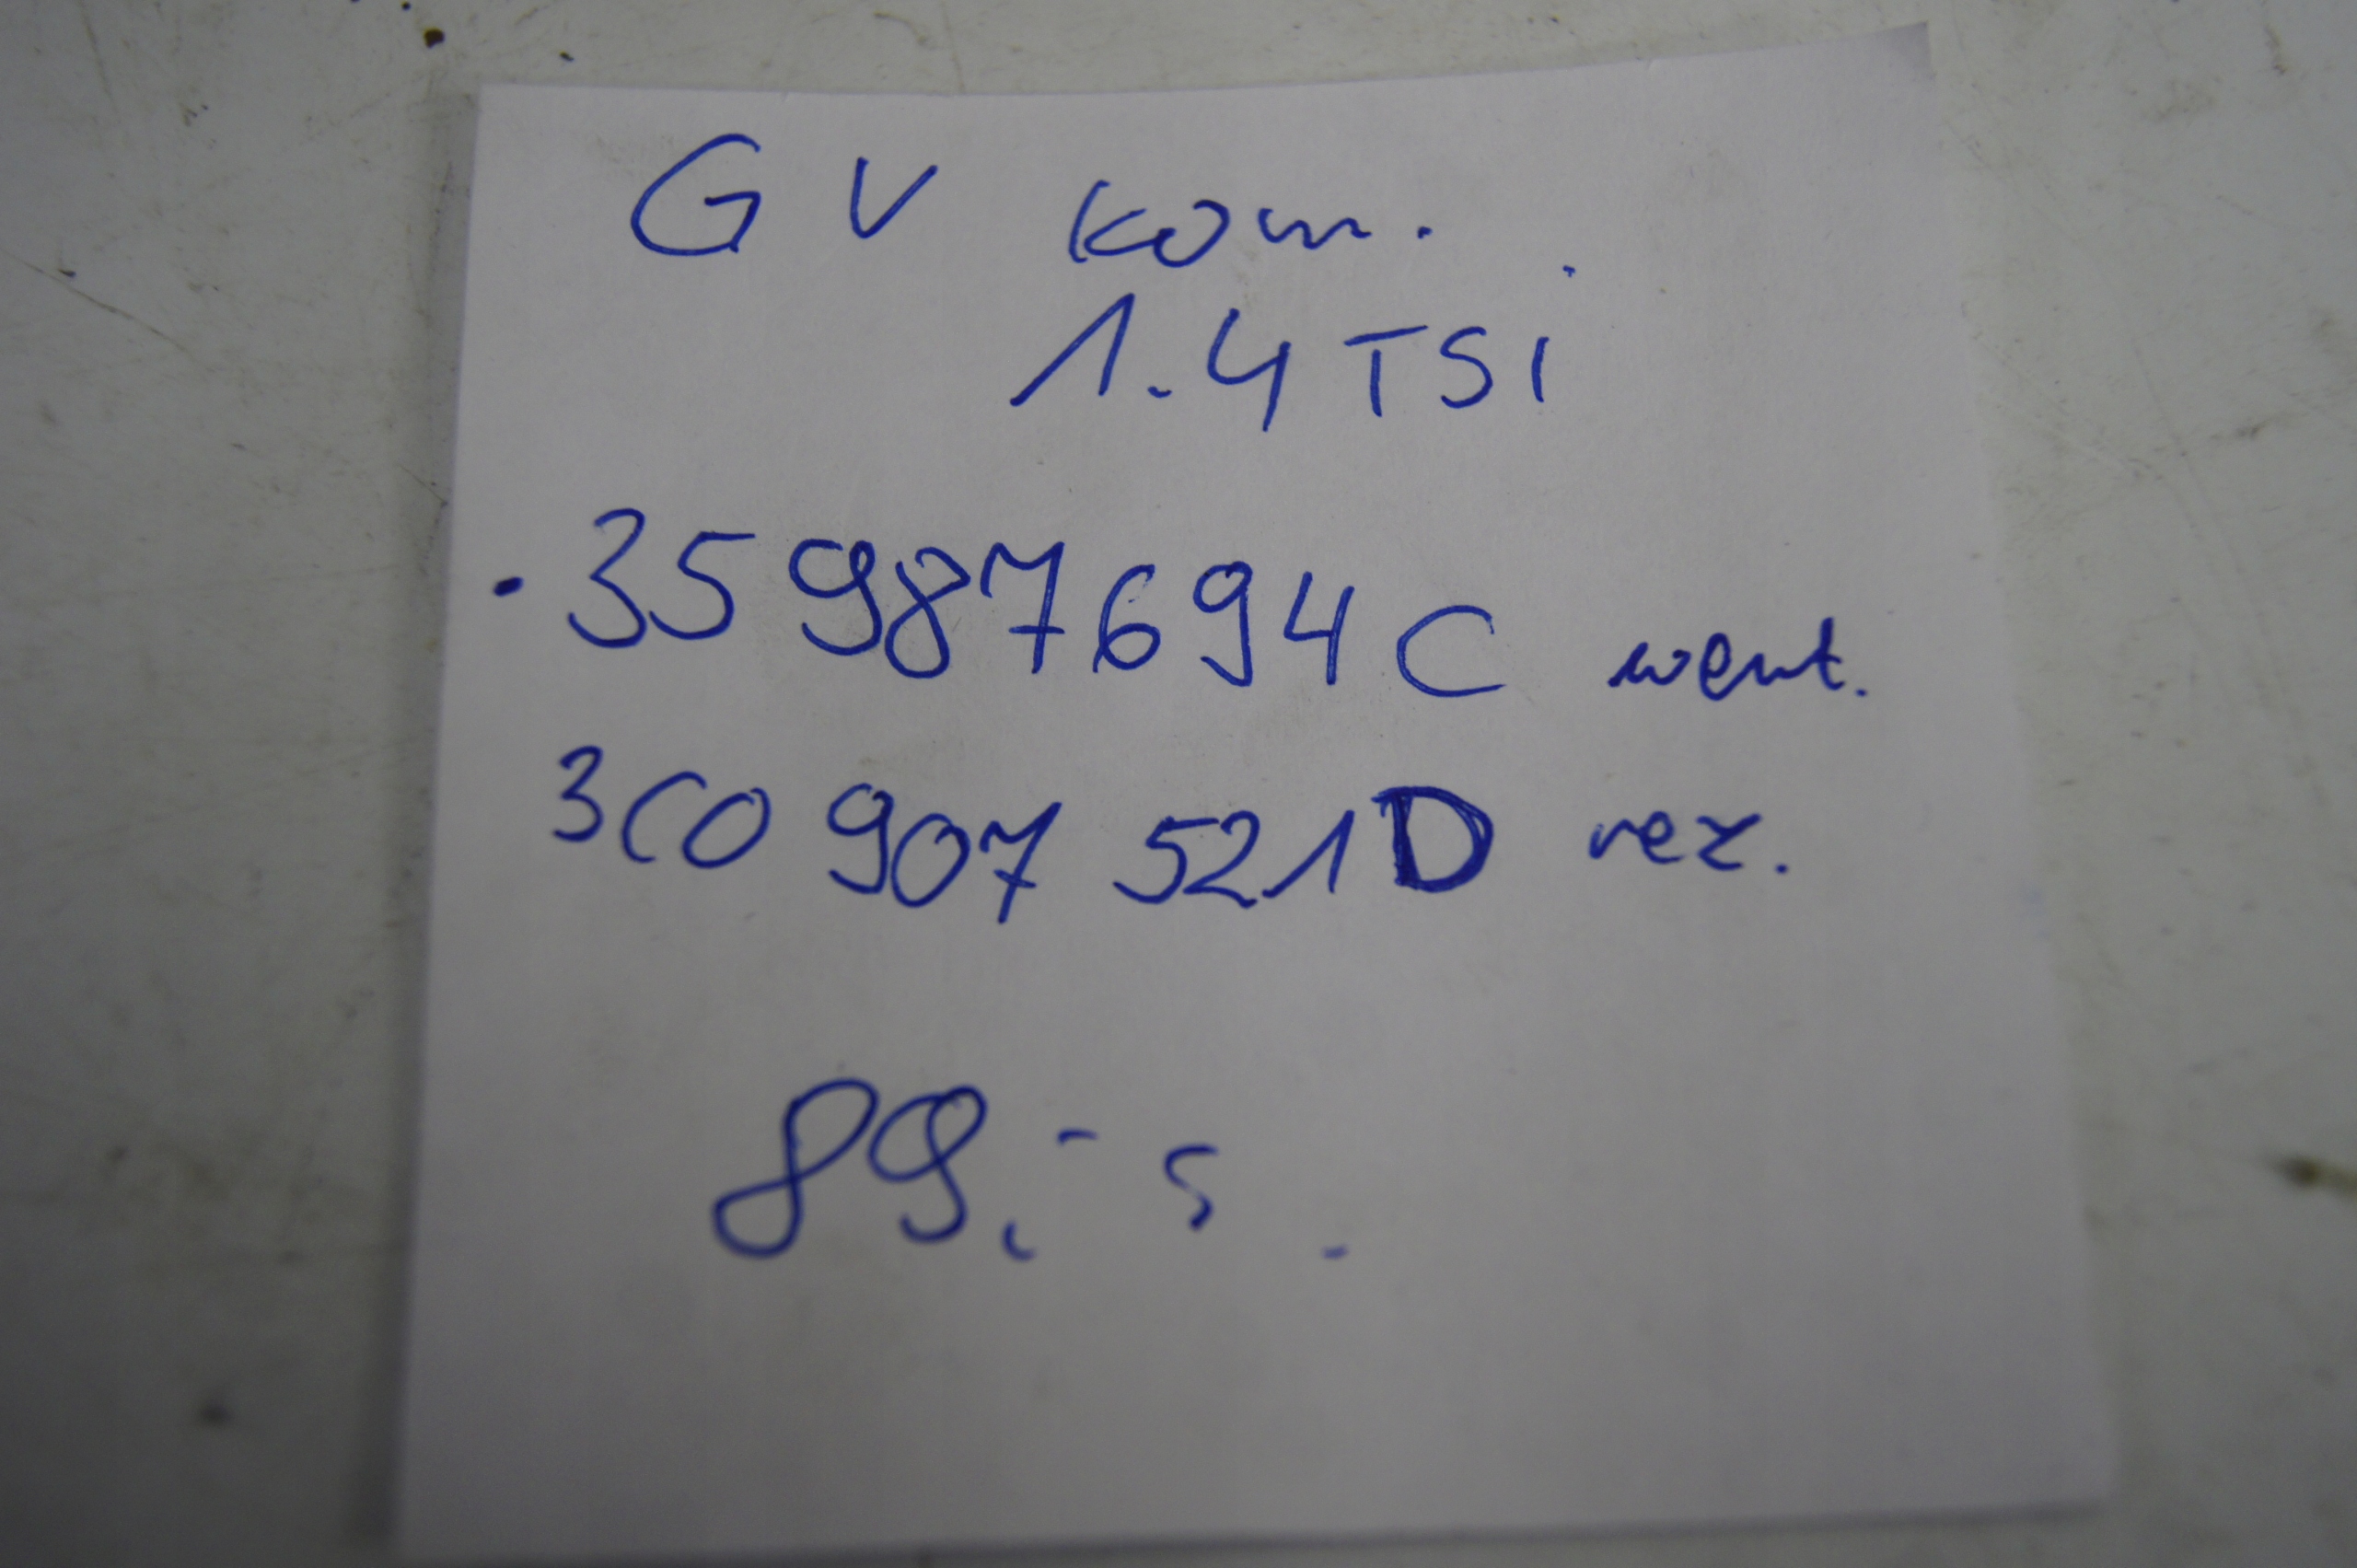 GV kom.
1.4 TSI
· 35987694C went.
3C0 907 521D rez.
89,- s.